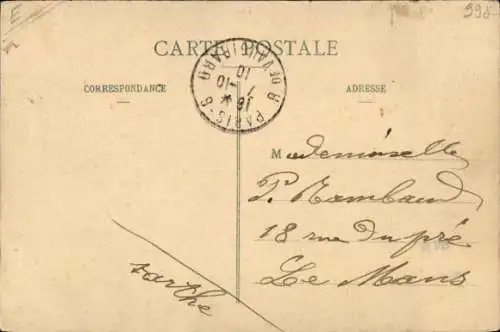 E
998
CARTE POSTALE
CORRESPONDANCE
ADRESSE
PARIS-8 R DE VAUGIRARD
16
7 -10
10
Mademoiselle
P. Rambaud
18 rue du pré
Le Mans
sarthe